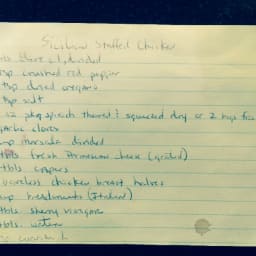 Sicilian Stuffed Chicken
olive oil, divided
crushed red pepper
tsp dried oregano
tsp salt
pkg spinach thawed & squeezed dry or 2 bags
garlic cloves
marsala divided
tbls fresh Parmesan cheese (grated)
tbls capers
boneless chicken breast halves
cup breadcrumbs (Italian)
tbls sherry vinegar
tbls. water